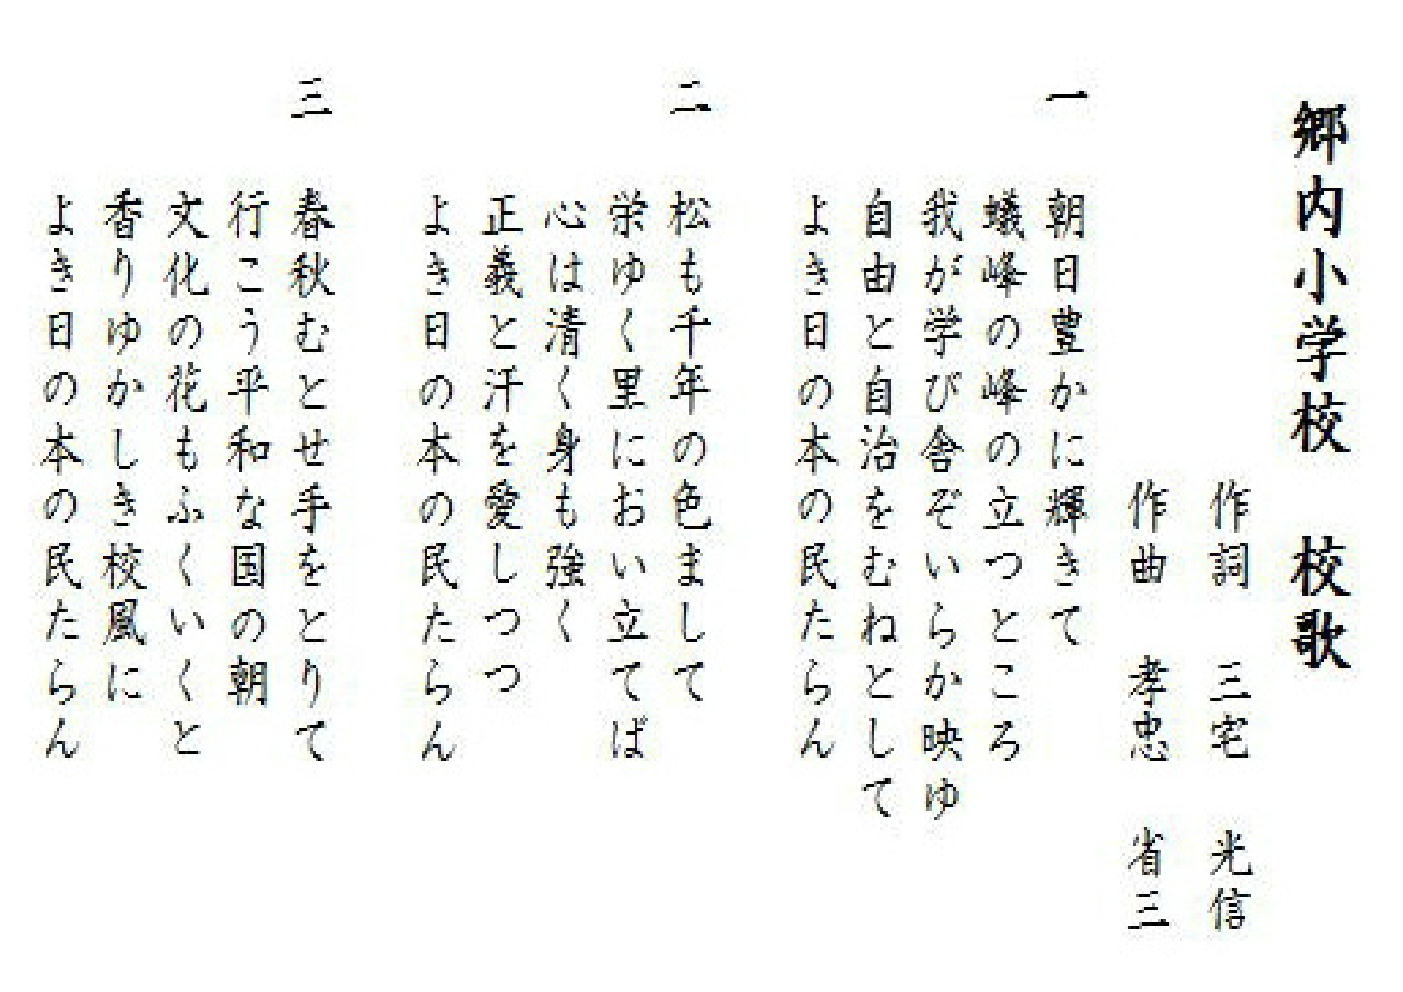 郷内小学校　校歌
作詞　三宅　光信
作曲　孝忠　省三
一　朝日豊かに輝きて
蟻峰の峰の立つところ
我が学び舎ぞいらか映ゆ
自由と自治をむねとして
よき日の本の民たらん
二　松も千年の色まして
栄ゆく里におい立てば
心は清く身も強く
正義と汗を愛しつつ
よき日の本の民たらん
三　春秋むとせ手をとりて
行こう平和な国の朝
文化の花もふくいくと
香りゆかしき校風に
よき日の本の民たらん